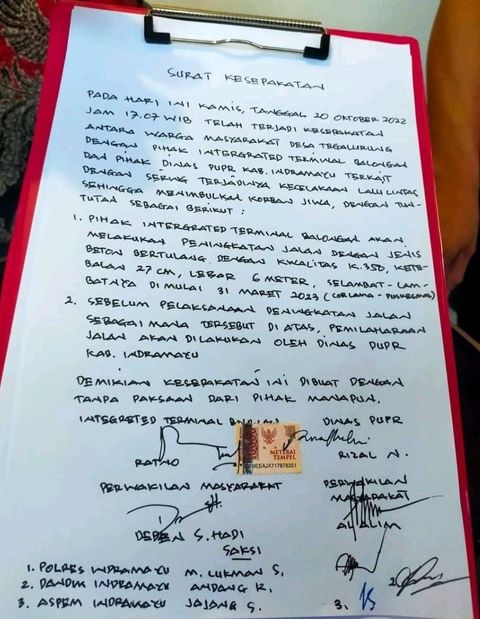 SURAT KESEPAKATAN
PADA HARI INI KAMIS, TANGGAL 20 OKTOBER 2022
JAM 17.07 WIB TELAH TERJADI KESEPAKATAN
ANTARA WARGA MASYARAKAT DESA TEGALURUNG
DENGAN PIHAK INTERGRATED TERMINAL BALONGAN
DAN PIHAK DINAS PUPR KAB. INDRAMAYU TERKAIT
DENGAN SERING TERJADINYA KECELAKAAN LALU LINTAS
SEHINGGA MENIMBULKAN KORBAN JIWA, DENGAN TUN-
TUTAN SEBAGAI BERIKUT :
1. PIHAK INTERGRATED TERMINAL BALONGAN AKAN
MELAKUKAN PENINGKATAN JALAN DENGAN JENIS
BETON BERTULANG DENGAN KWALITAS K.350, KETE-
BALAN 27 CM, LEBAR 6 METER, SELAMBAT-LAM-
BATNYA DIMULAI 31 MARET 2023 (CORLAMA - PUSKESMAS)
2. SEBELUM PELAKSANAAN PENINGKATAN JALAN
SEBAGAIMANA TERSEBUT DI ATAS, PEMILAHARAAN
JALAN AKAN DILAKUKAN OLEH DINAS PUPR
KAB. INDRAMAYU
DEMIKIAN KESEPAKATAN INI DIBUAT DENGAN
TANPA PAKSAAN DARI PIHAK MANAPUN.
INTEGRATED TERMINAL DINAS PUPR
METERAI
TEMPEL
RATNO RIZAL N.
PERWAKILAN MASYARAKAT PERWAKILAN
MASYARAKAT
DEDEN S. HADI AL ALIM
SAKSI
1. POLRES INDRAMAYU M. LUKMAN S.
2. DANDIM INDRAMAYU ANDANG R. 2.
3. ASPEM INDRAMAYU JAJANG S. 3.